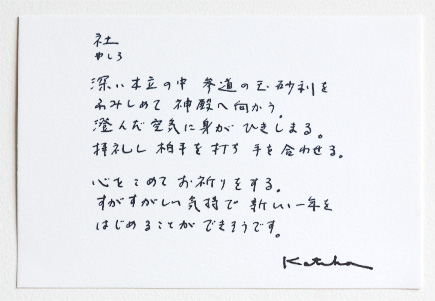 社
やしろ
深い木立の中 参道の玉砂利を
ふみしめて 神殿へ向かう。
澄んだ空気に身がひきしまる。
拝礼し 柏手を打ち 手を合わせる。
心をこめてお祈りをする。
すがすがしい気持で 新しい一年を
はじめることができそうです。